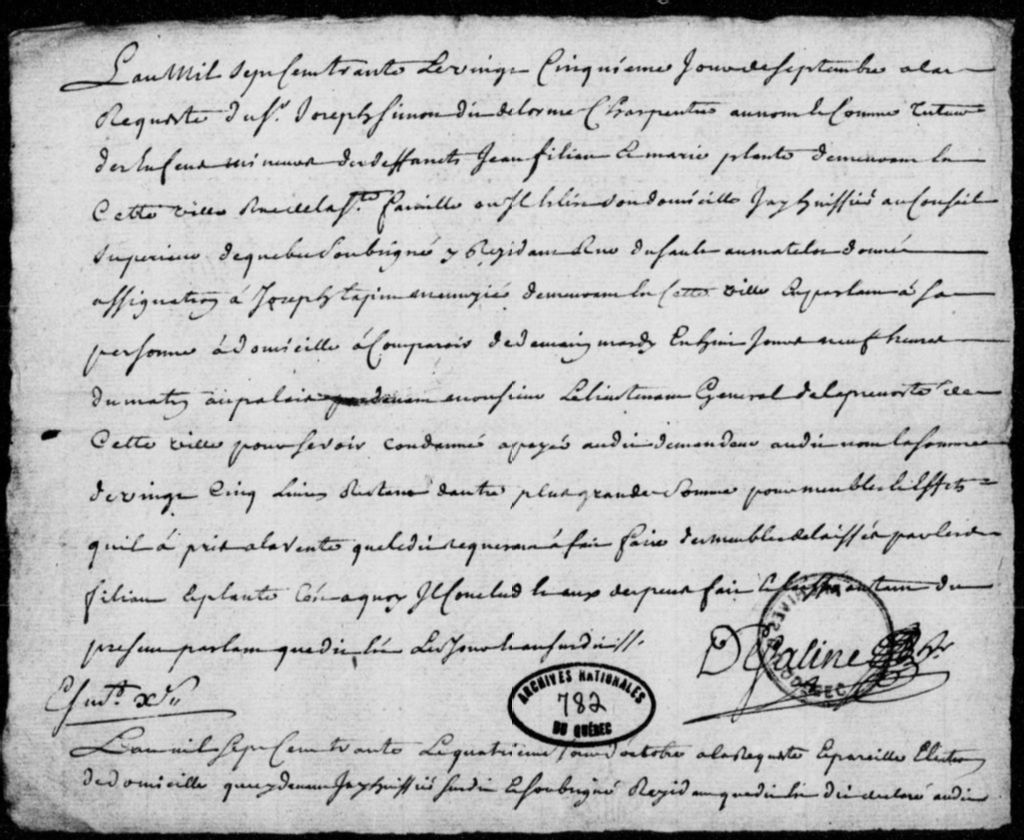 Lan Mil Sept Cent trante Le vingt Cinquieme Jour de septembre a la
Requeste du Sr. Joseph Simon dit delorme Charpentié au nom et Comme tuteur
des Enfens mineurs des deffuncts Jean filian et marie plante demeurant En
Cette ville Rue de la Ste. famille ou Il Eslit son domicille Jay huissié au Conseil
superieur de quebec soubsigné y Rezidant Rue du sault au matelot donné
assignation à Joseph menuzié demeurant En Cette ville En parlant à sa
personne à domicille à Comparoir de demain mardy En huit Jours neuf heures
du matin au palais pardevant monsieur Le lieutenant General de la prevosté de
Cette ville pour se voir condanné a payer audit demandeur audit nom la somme
de vingt Cinq Livres Restant dautre plus grande somme pour meubles et Effets
quil à pris a la vente que ledit requerant à fait faire des meubles delaissés par lesd
filian et plante a quoy Il Conclud et aux depens fait et laissé autant du
present parlant que dit Est Les Jour et an susdit
DeSaline hr
ARCHIVES NATIONALES
782
DU QUÉBEC
Lan mil sept Cent trante Le quatrieme Jour doctobre a la Requeste et pareille Election
de domicille que devant Jay huissié susdit Et soubsigné Rezidant que dit Est declaré audit